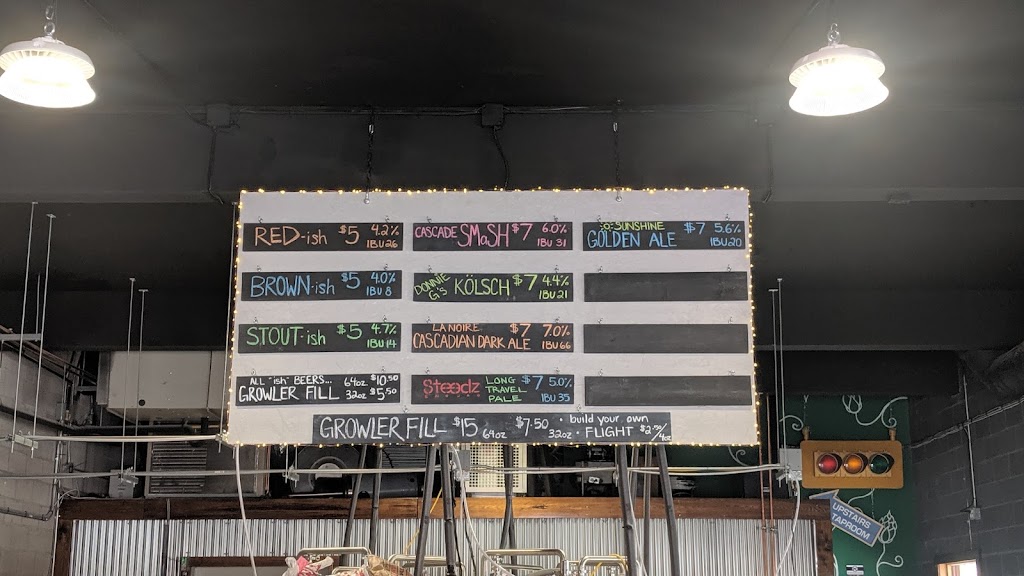 RED-ish $5 4.2%
IBU 26
BROWN-ish $5 4.0%
IBU 8
STOUT-ish $5 4.7%
IBU 14
ALL "ish" BEERS... 64oz $10.50
GROWLER FILL 32oz $5.50
CASCADE SMaSH $7 6.0%
IBU 31
DONNIE G's KÖLSCH $7 4.4%
IBU 21
LA NOIRE $7 7.0%
CASCADIAN DARK ALE IBU 66
Steedz LONG TRAVEL PALE $7 5.0%
IBU 35
SUNSHINE $7 5.6%
GOLDEN ALE IBU 20
GROWLER FILL $15 64oz $7.50 32oz
• build your own
• FLIGHT $2.50/4oz
UPSTAIRS
TAPROOM